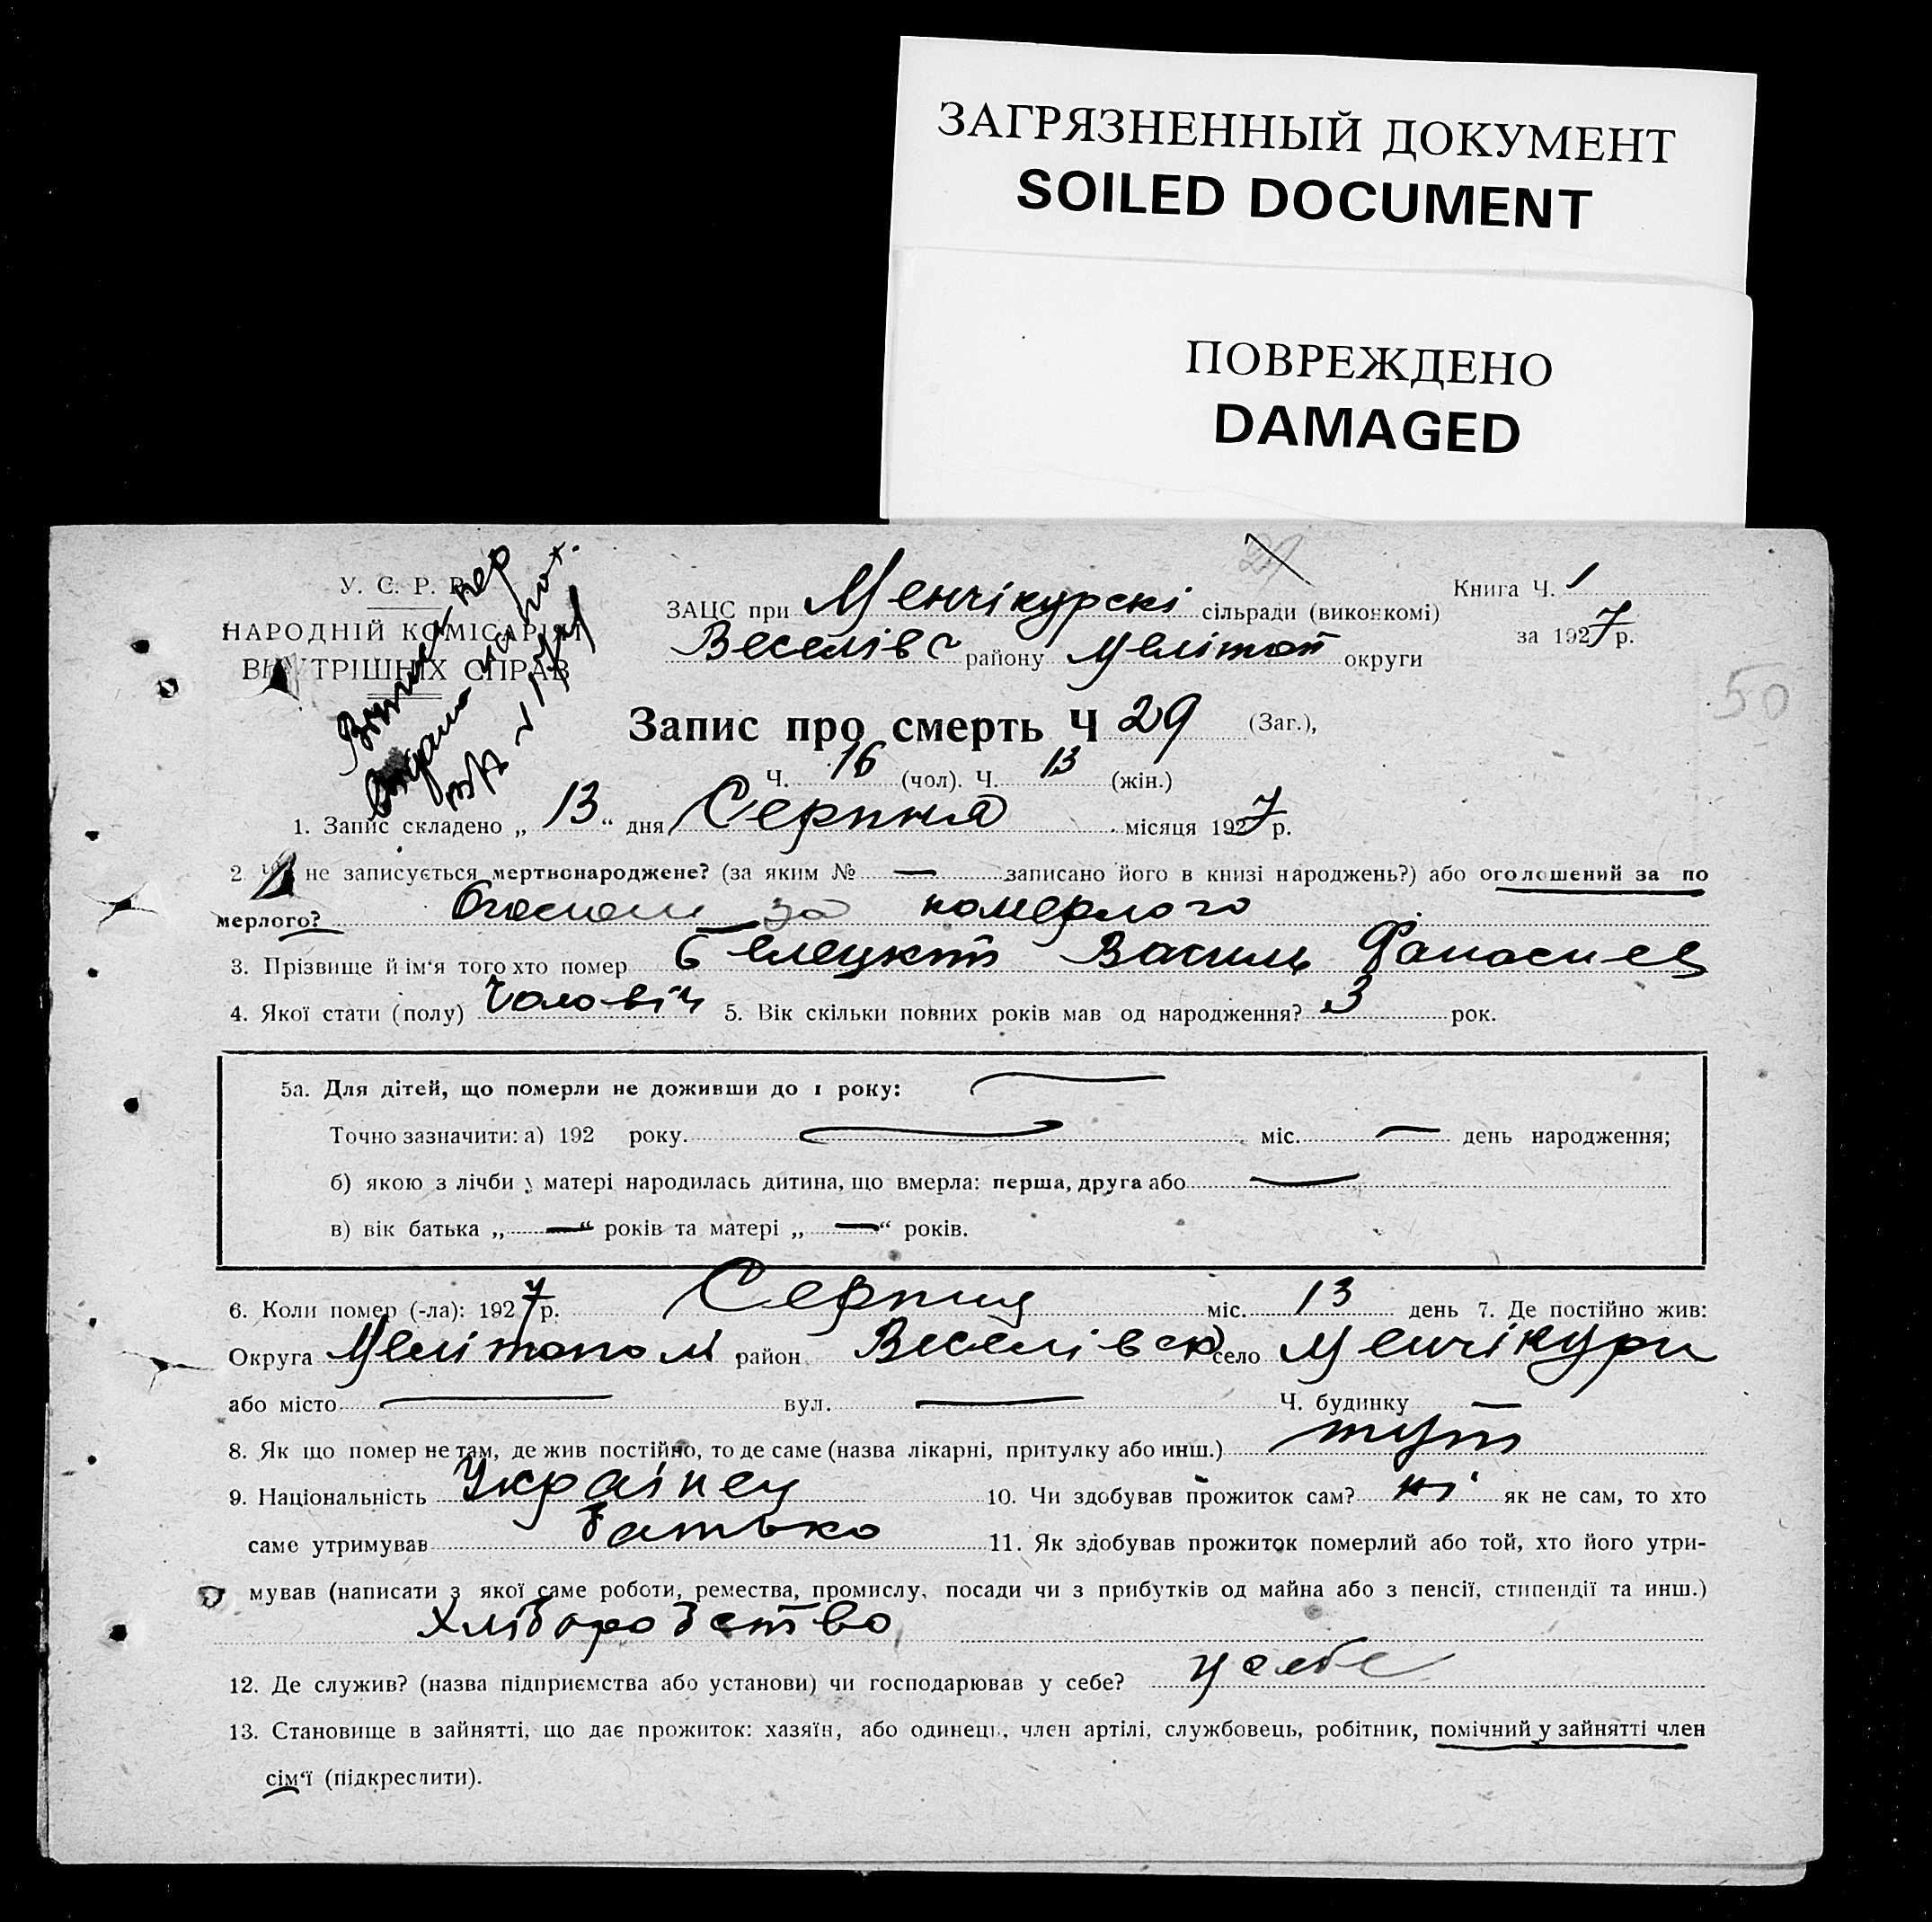 ЗАГРЯЗНЕННЫЙ ДОКУМЕНТ
SOILED DOCUMENT
ПОВРЕЖДЕНО
DAMAGED
У. С. Р. Р.
НАРОДНІЙ КОМІСАРІЯТ
ВНУТРІШНІХ СПРАВ
ЗАЦС при Менчікурскі сільради (виконкомі)
Веселівс району Меліто округи
Книга Ч. 1
за 1927 р.
50
Запис про смерть Ч 29 (Заг.),
Ч. 16 (чол). Ч. 13 (жін.)
1. Запис складено „ 13 “ дня Серпня місяця 1927 р.
2. Чи не записується мертвонароджене? (за яким № — записано його в книзі народжень?) або оголошений за по
мерлого? за померлого
3. Прізвище й ім'я того хто помер Белецкий Василь Фанасиев
4. Якої стати (полу) Чоловіч 5. Вік скільки повних років мав од народження? 3 рок.
5а. Для дітей, що померли не доживши до 1 року: —
Точно зазначити: а) 192 року. — міс. — день народження;
б) якою з лічби у матері народилась дитина, що вмерла: перша, друга або —
в) вік батька „ — “ років та матері „ — “ років.
6. Коли помер (-ла): 1927 р. Серпня міс. 13 день 7. Де постійно жив:
Округа Мелітопол район Веселівск село Менчікури
або місто — вул. — Ч. будинку —
8. Як що помер не там, де жив постійно, то де саме (назва лікарні, притулку або инш.) тут
9. Національність Украінец 10. Чи здобував прожиток сам? ні як не сам, то хто
саме утримував батько 11. Як здобував прожиток померлий або той, хто його утри-
мував (написати з якої саме роботи, ремества, промислу, посади чи з прибутків од майна або з пенсії, стипендії та инш.)
хліборобство
12. Де служив? (назва підприємства або установи) чи господарював у себе? у себе
13. Становище в зайнятті, що дає прожиток: хазяїн, або одинець, член артілі, службовець, робітник, помічний у зайнятті член
сім'ї (підкреслити).